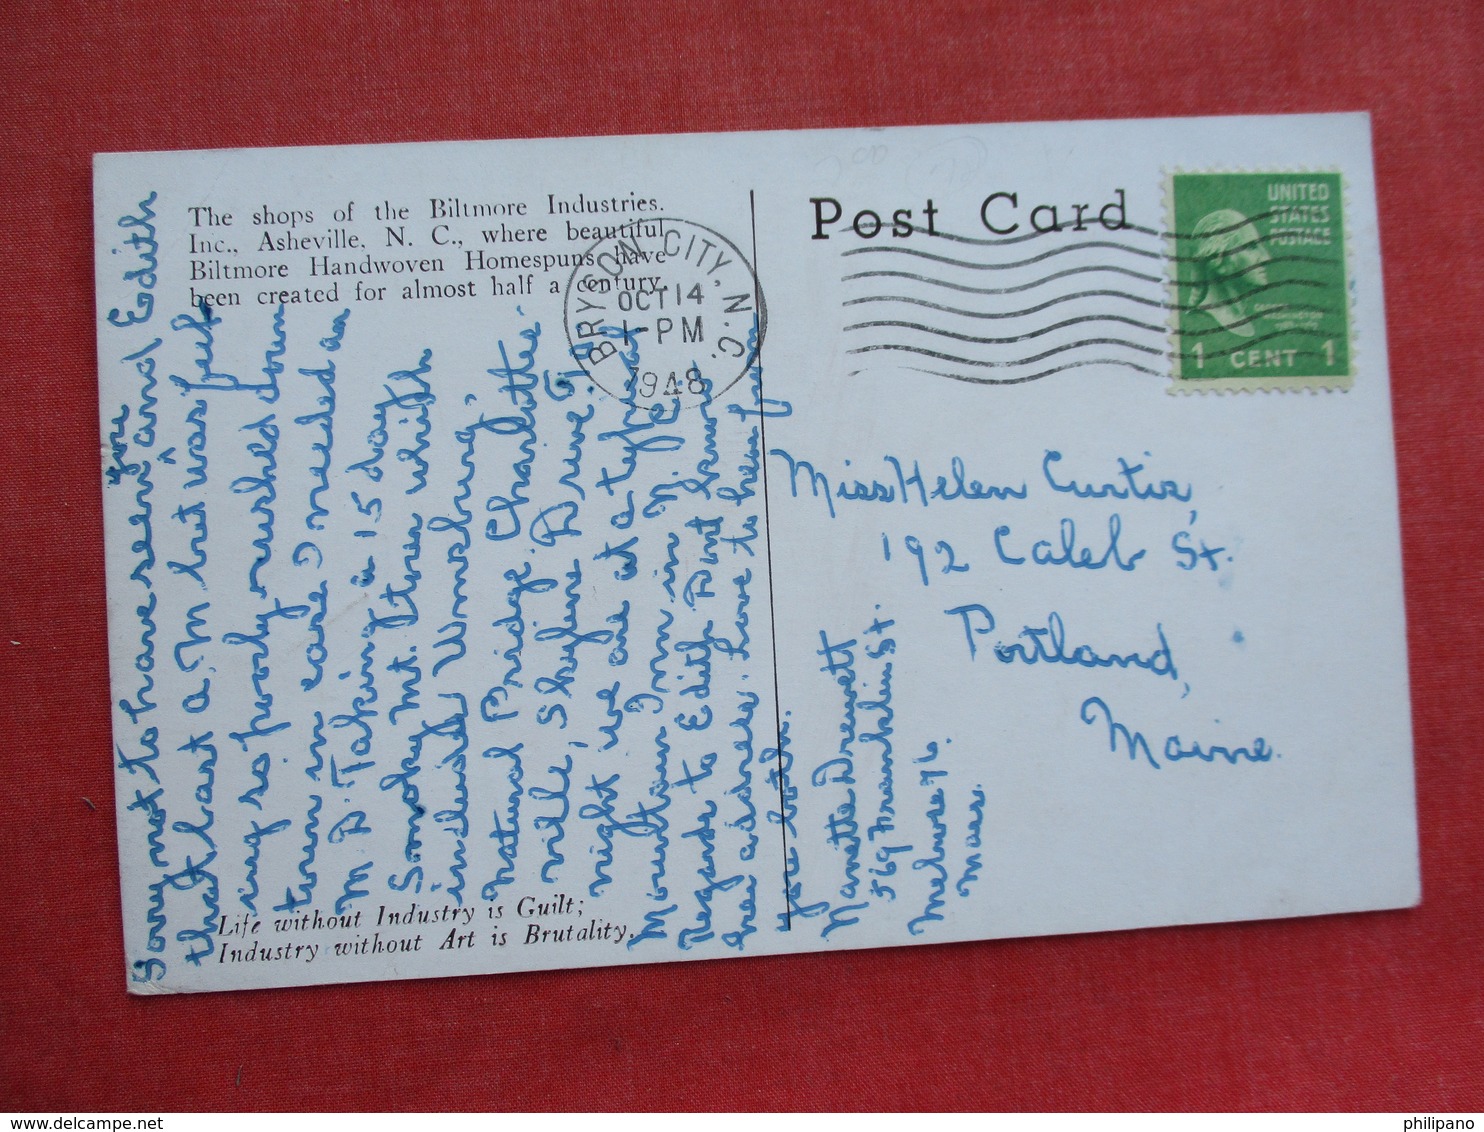 The shops of the Biltmore Industries.
Inc., Asheville, N. C., where beautiful
Biltmore Handwoven Homespuns have
been created for almost half a century.
Post Card
UNITED
STATES
POSTAGE
1 CENT 1
BRYSON CITY, N.C.
OCT 14
1-PM
1948
Sorry not to have seen you and Edith
that last a.m but was feel
ing so poorly rushed down
town in case I needed an
M D. Taking a 15 day
Smoky Mt. tour which
included Wmsburg,
Natural Bridge, Charlottes-
ville, Skyline Drive. To
night we are at a typical
Mountain Inn in N. C.
Regards to Edith. Dont know
her address. Love to hear from
you both.
Nanette Drewett
569 Franklin St.
Melrose 76
Mass.
Miss Helen Curtis,
192 Caleb St.
Portland,
Maine.
Life without Industry is Guilt;
Industry without Art is Brutality.
www.delcampe.net
philipano